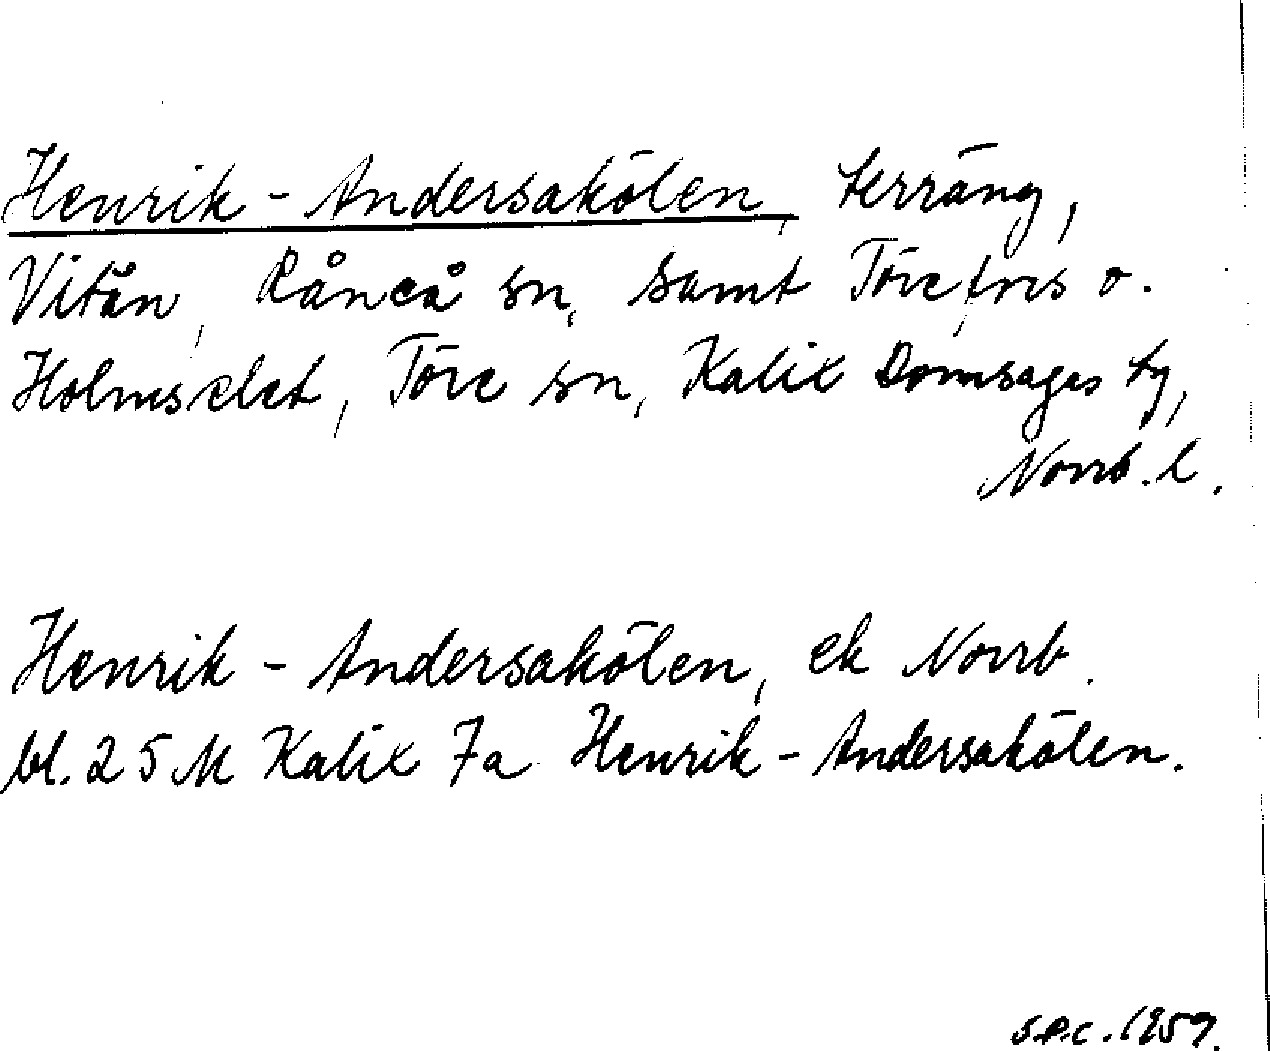 Henrik-Andersakölen, terräng,
Vitån, Råneå sn, samt Törefors o.
Holmselet, Töre sn, Kalix Domsagas tg,
Norrb. l.
Henrik-Andersakölen, ek Norrb.
bl. 25 M Kalix 7a Henrik-Andersakölen.
S.P.C. 1959.